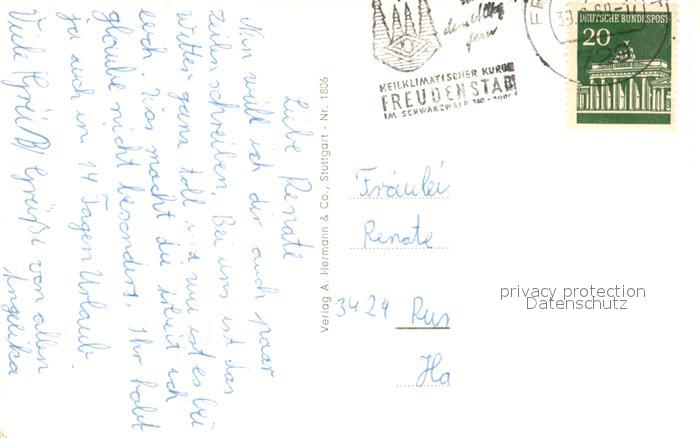 Liebe Renate
Nun will ich dir auch paar
Zeilen schreiben. Bei uns ist das
Wetter ganz toll und wie ist es bei
euch. Was macht die Arbeit ich
glaube nicht besonders, Ihr habt
ja auch in 14 Tagen Urlaub.
Viele Grüße von allen
Angelika
Verlag A. Hermann & Co., Stuttgart - Nr. 1806
dem Alltag
fern
HEILKLIMATISCHER KURORT
FREUDENSTADT
IM SCHWARZWALD
DEUTSCHE BUNDESPOST
20
Fräulei
Renate
3424
Ha
privacy protection
Datenschutz